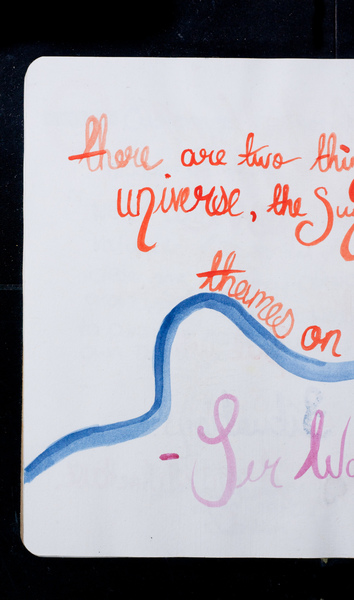 there are two thi
universe, the Su
thames on
- Sir Wa